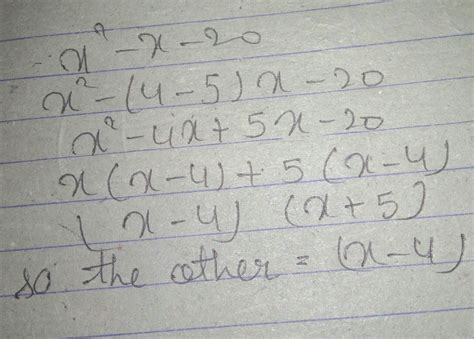 x² - x - 20
x² - (4 - 5) x - 20
x² - 4x + 5x - 20
x (x - 4) + 5 (x - 4)
(x - 4) (x + 5)
so the other = (x - 4)